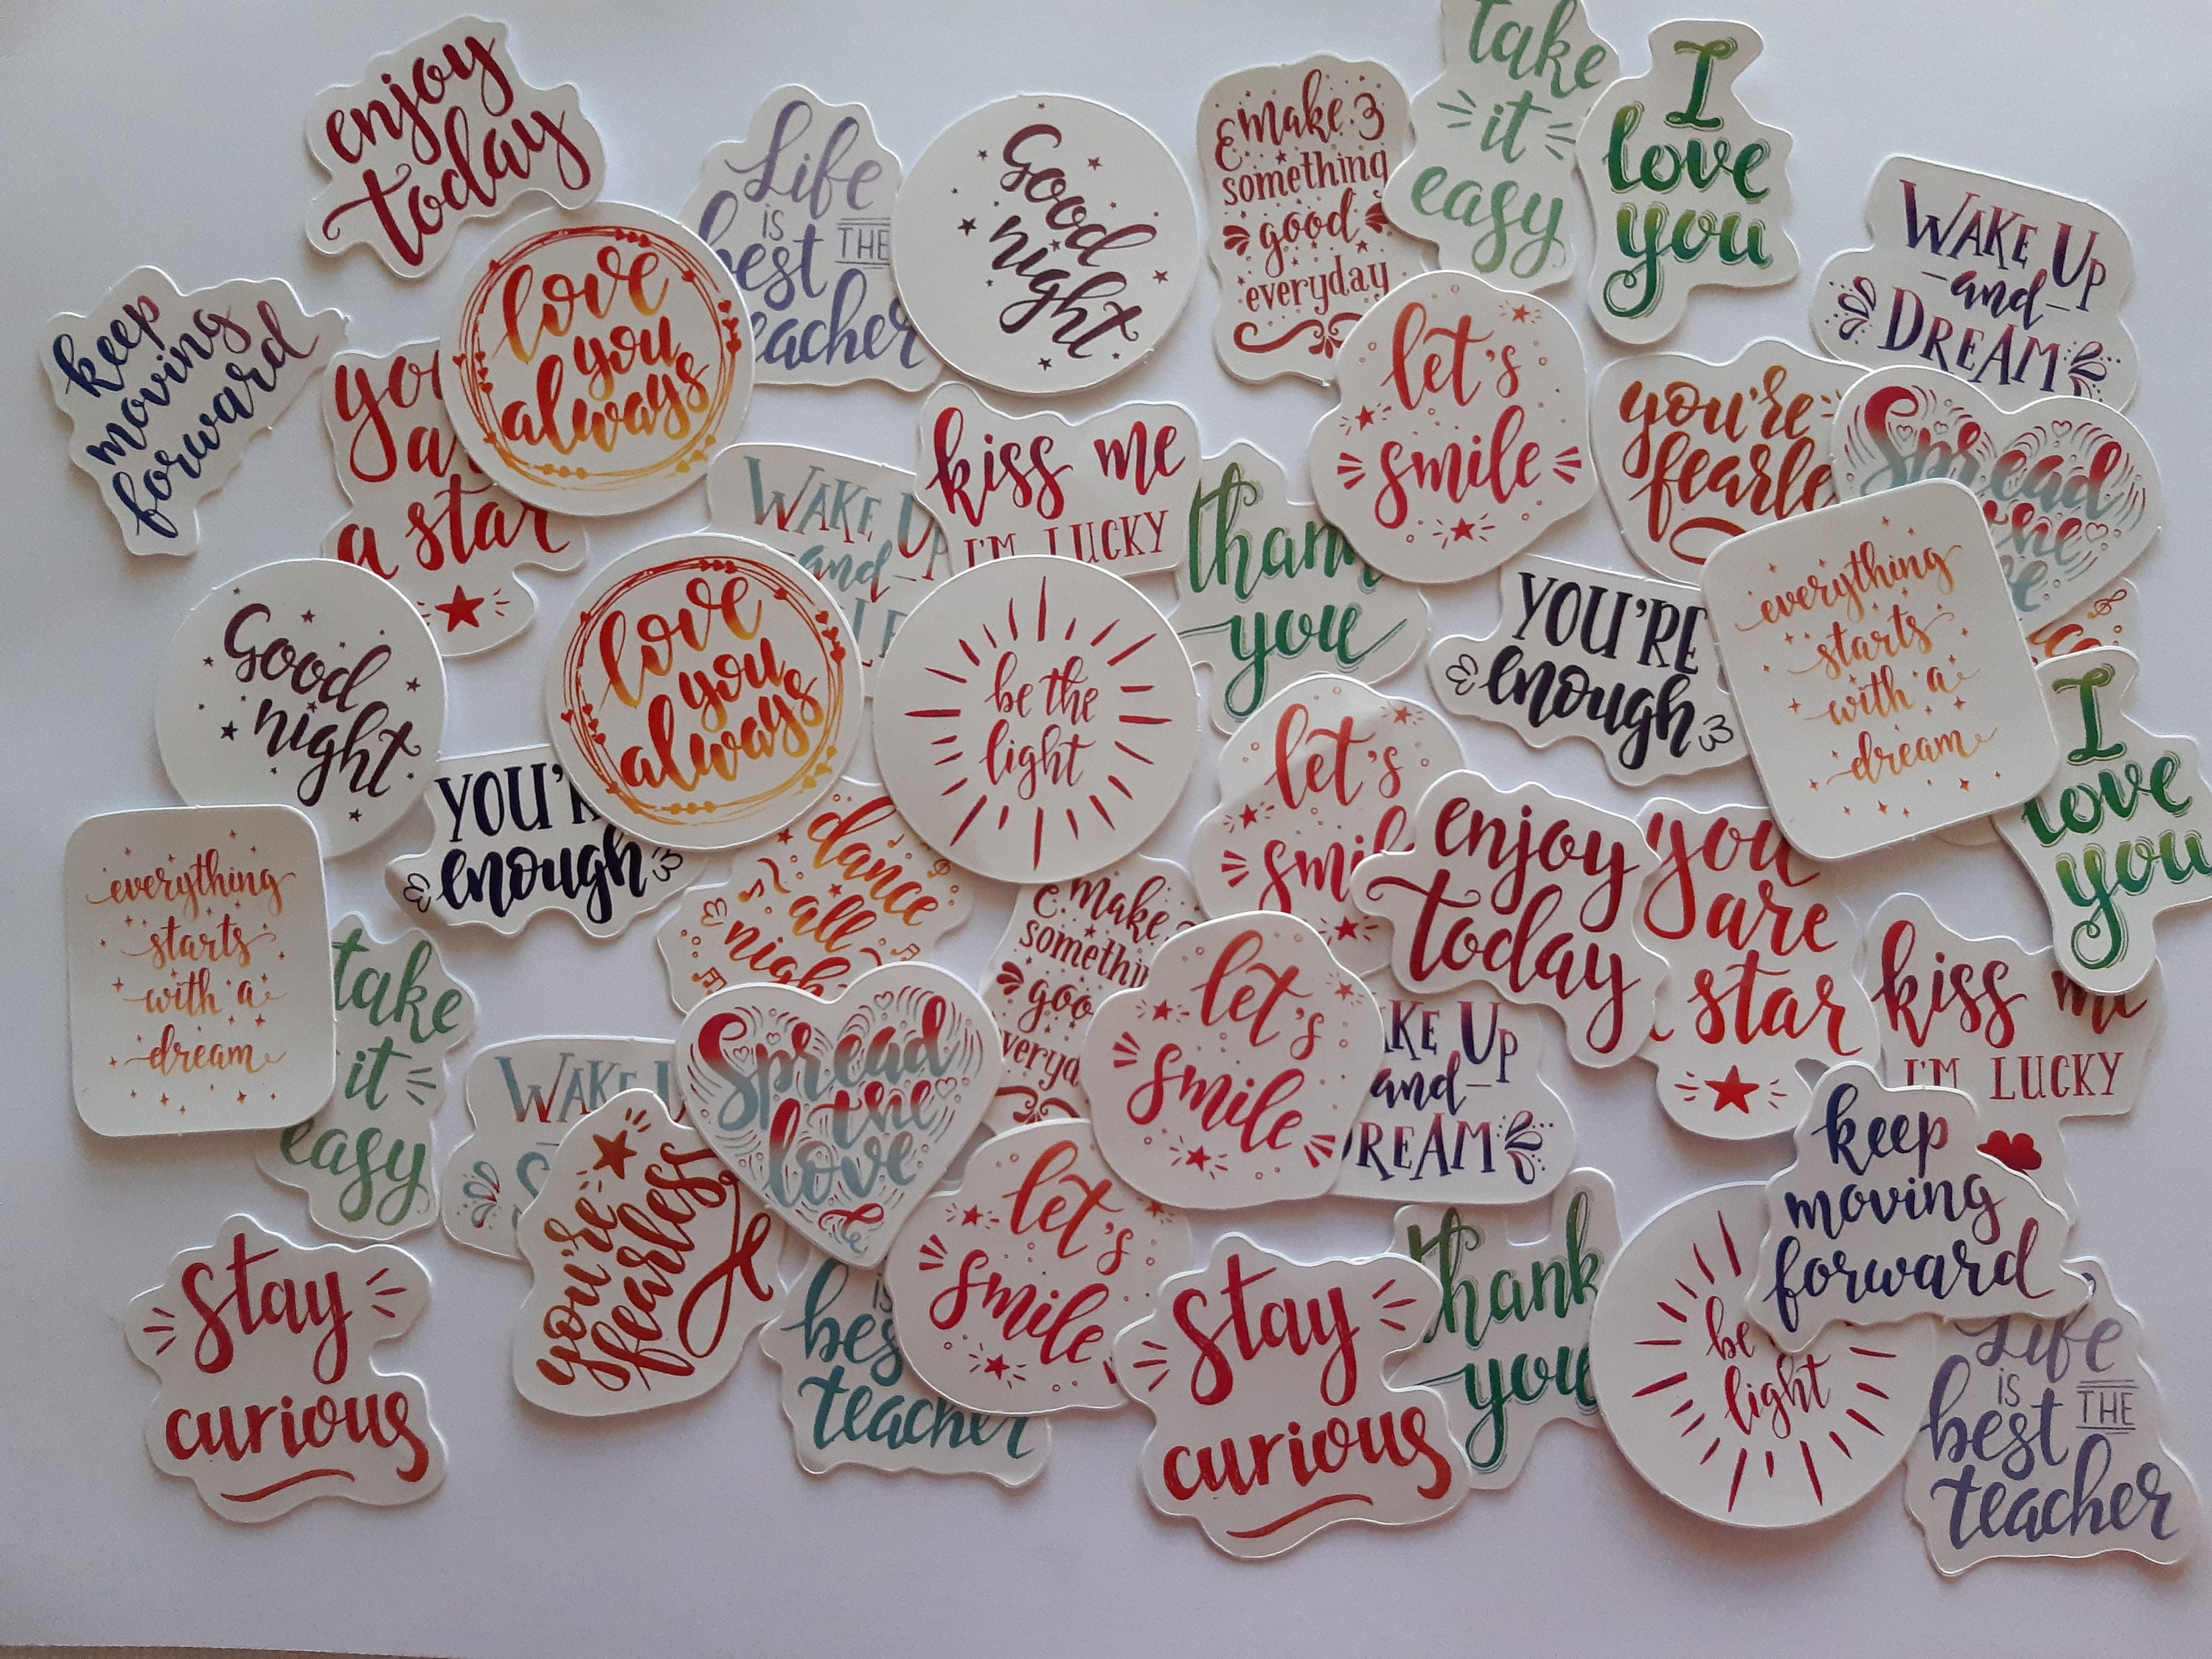 enjoy
today
Life
IS THE
best
teacher
Good
night
make
something
good
everyday
take
it
easy
I
love
you
WAKE UP
and
DREAM
keep
moving
forward
you
a
a star
love
you
always
WAKE UP
and
kiss me
I'M LUCKY
thank
you
let's
smile
you're
fearle
Spread
the
everything
starts
with a
dream
YOU'RE
enough
I
love
you
Good
night
love
you
always
be the
light
YOU'R
enough
dance
all
nigh
make
somethin
goo
veryda
let's
smil
enjoy
today
you
are
star
kiss me
I'M LUCKY
everything
starts
with a
dream
take
it
easy
WAKE U
S
you're
fearless
Spread
the
love
let's
smile
KE UP
and
REAM
keep
moving
forward
stay
curious
is
bes
teacher
let's
smile
stay
curious
thank
you
be
light
Life
IS THE
best
teacher